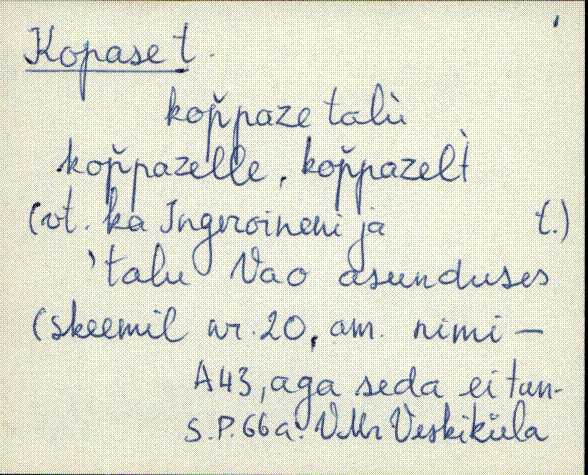 Kopase t.
kop̆paze talù
kop̆pazelle, kop̆pazelt̀
(vt. ka Ingeroineni ja t.)
'talu Vao asunduses
(skeemil nr. 20, am. nimi –
A43, aga seda ei tun-
S.P. 66 a. VMr Veskiküla